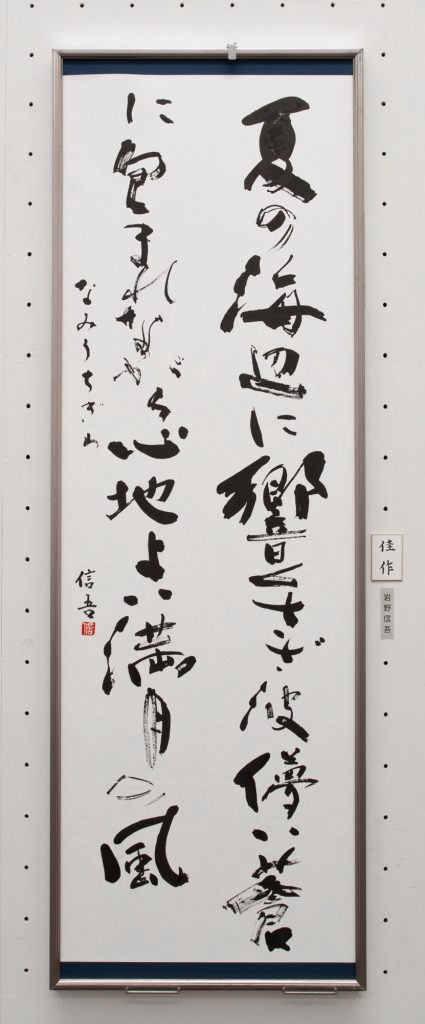 夏の海辺に響くさざ波儚い蒼
に包まれながら心地よい満月の風
なみうちぎわ
信吾
佳作
岩野信吾